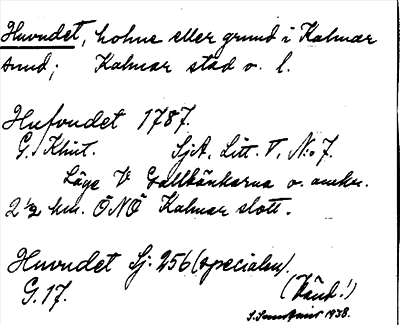 Huvudet, holme eller grund i Kalmar
sund; Kalmar stad o. l.
Hufvudet 1787.
G. Klint. SjA. Litt. V, N:o 7.
Läge V Gallbänkarna o. omkr.
2 ½ km. ÖNÖ Kalmar slott.
Huvudet Sj: 256 (specialen).
G. 17. (Vänd!)
1938.